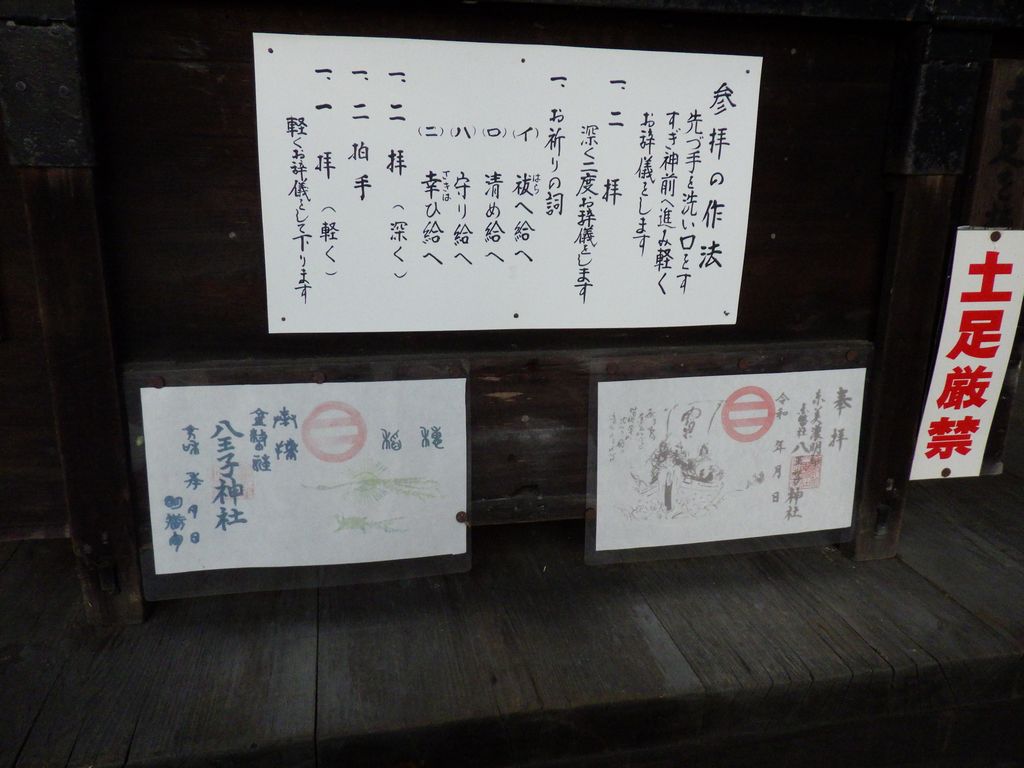 参拝の作法
先づ手を洗い口をす
すぎ神前へ進み軽く
お辞儀をします
一、二 拝
深く二度お辞儀をします
一、お祈りの詞
(イ) 祓へ給へ
はら
(ロ) 清め給へ
(ハ) 守り給へ
(ニ) 幸ひ給へ
さきは
一、二 拝 (深く)
一、二 拍手
一、一 拝 (軽く)
軽くお辞儀をして下ります
土足厳禁
奉拝
八王子神社
令和 年 月 日
八王子神社